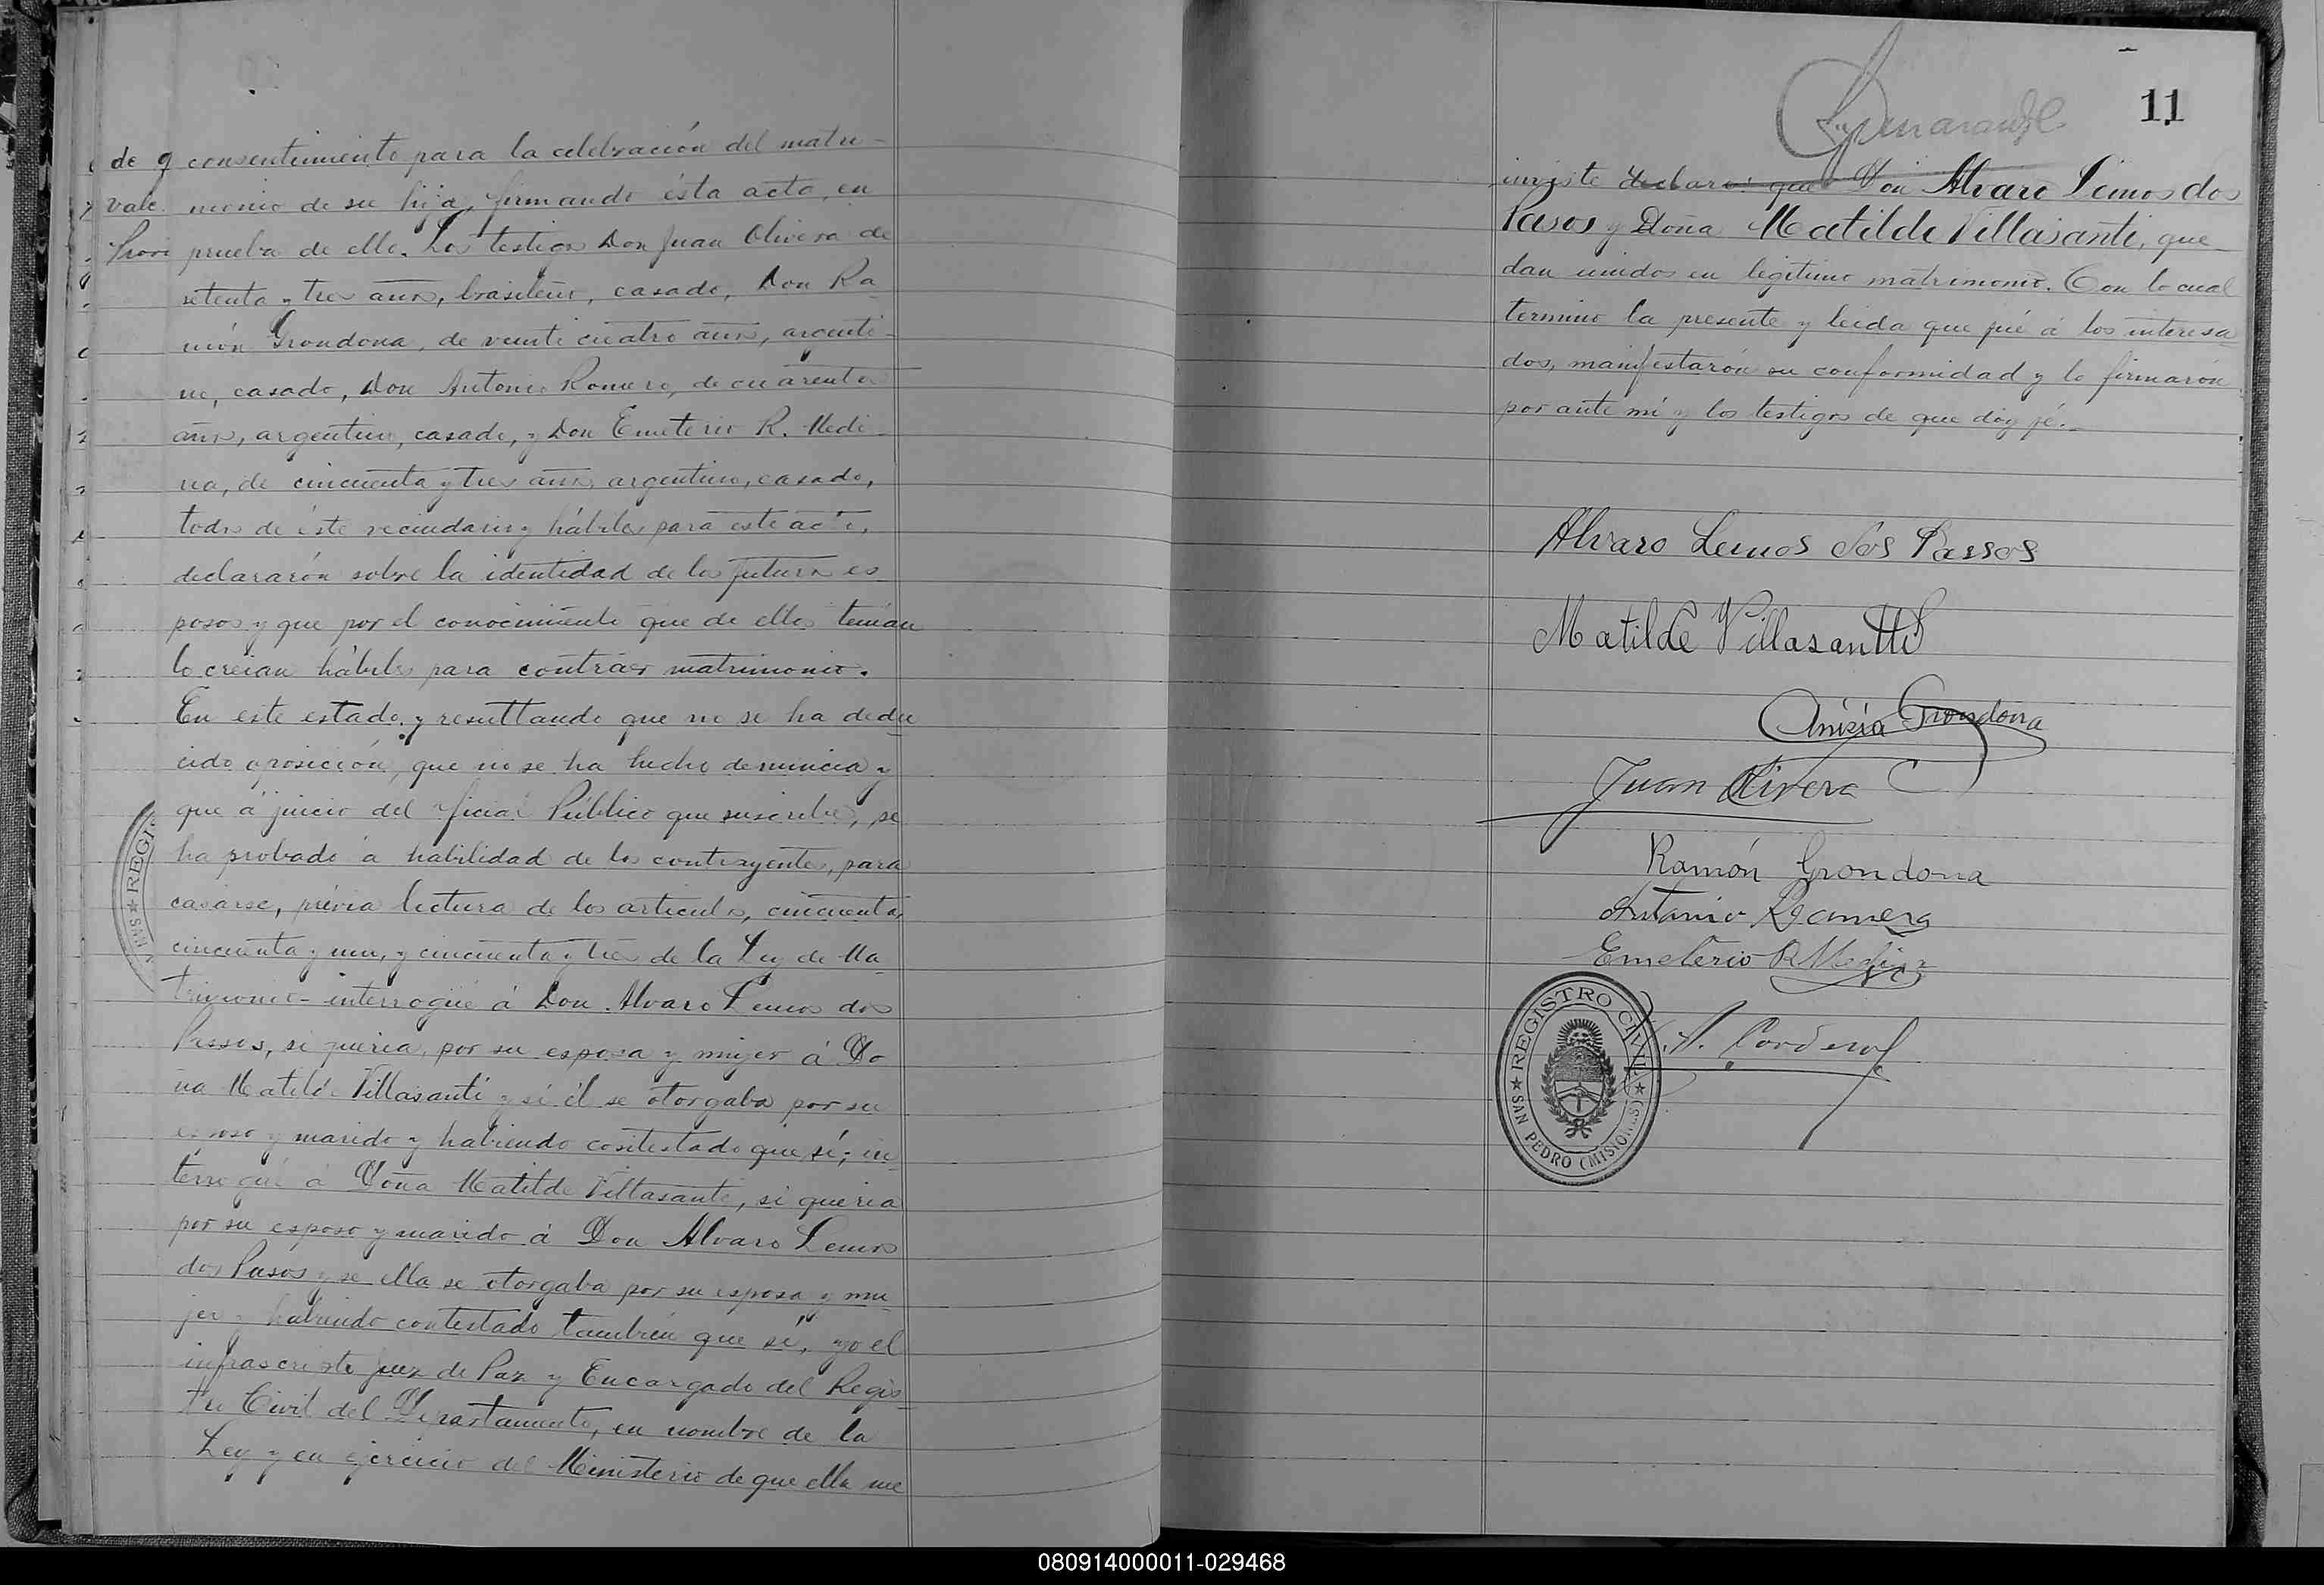 de q consentimiento para la celebración del matri-
vale. monio de su hija, firmando ésta acta, en
prueba de ello. Los testigos Don Juan Olivera de
setenta y tres años, brasilero, casado, Don Ra-
món Grondona, de veinti cuatro años, argenti-
no, casado, Don Antonio Romero, de cuarenta
años, argentino, casado, y Don Emeterio R. Medi-
na, de cincuenta y tres años, argentino, casado,
todos de éste vecindario y hábiles para este acto,
declararón sobre la identidad de los futuros es
posos y que por el conocimiento que de ellos tenían
lo creian hábiles para contraer matrimonio.
En este estado, y resultando que no se ha dedu
cido oposición, que no se ha hecho denuncia y
que á juicio del oficial Público que suscribe, se
ha probado la habilidad de los contrayentes, para
casarse, prévia lectura de los articulos, cincuenta,
cincuenta y uno, y cincuenta y tres de la Ley de Ma-
trimonio- interrogué á Don Alvaro Lemos dos
Passos, si queria, por su esposa y mujer á Do
ña Matilde Villasanti y si él se otorgaba por su
esposo y marido y habiendo contestado que sí; in-
terrogué á Doña Matilde Villasanti, si queria
por su esposo y marido á Don Alvaro Lemos
dos Pasos y se ella se otorgaba por su esposa y mu-
jer y habiendo contestado también que sí, yo el
infrascristo juez de Paz y Encargado del Regis-
tro Civil del Departamento, en nombre de la
Ley y en ejercicio del Ministerio de que ella me
REGIS
SAN
11
inviste declaro: que Don Alvaro Lemos dos
Pasos y Doña Matilde Villasanti, que-
dan unidos en legítimo matrimonio. Con lo cual
termino la presente y leida que fué á los interesa
dos, manifestarón su conformidad y lo firmarón
por ante mí y los testigos de que dóy fé.-
Alvaro Lemos dos Passos
Matilde Villasantti
Anisia Grondona
Juan Olivera
Ramón Grondona
Antonio Romero
Emeterio R Medina
A. Cordero
REGISTRO CIVIL
SAN PEDRO (MISIONES)
080914000011-029468